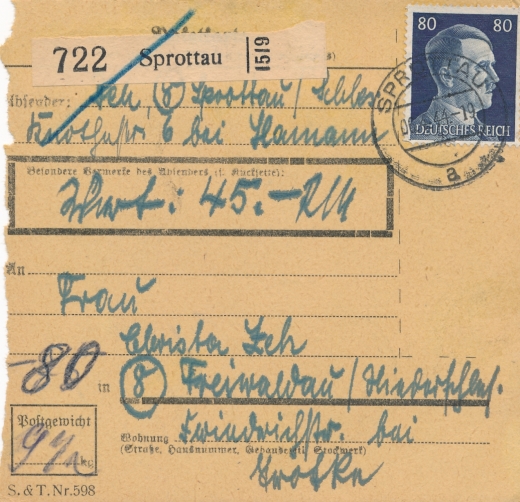 80 80
722 Sprottau 1519
Absender: Zeh, (8) Sprottau / Schles
6 bei Hamann
DEUTSCHES REICH
SPROTTAU
a
Besondere Vermerke des Absenders (s. Rückseite):
Wert: 45.- RM
An
Frau
Christa Zeh
80
in (8) Freiwaldau / Niederschles.
Postgewicht
kg
Friedrichstr. bei
Wohnung
(Straße, Hausnummer, Gebäudeteil, Stockwerk)
S. & T. Nr. 598